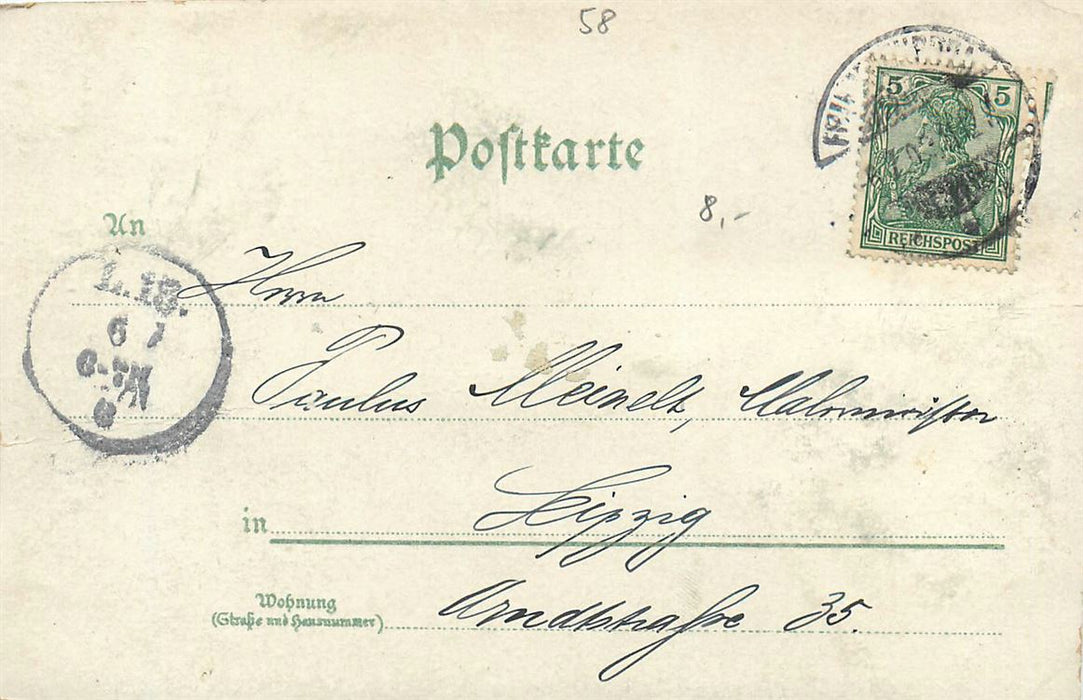 58
5 5
Postkarte
REICHSPOST
8,-
An
L. 13.
Herrn
Paulus Meinelt, Malermeister
in Leipzig
Wohnung
(Straße und Hausnummer)
Arndtstraße 35.